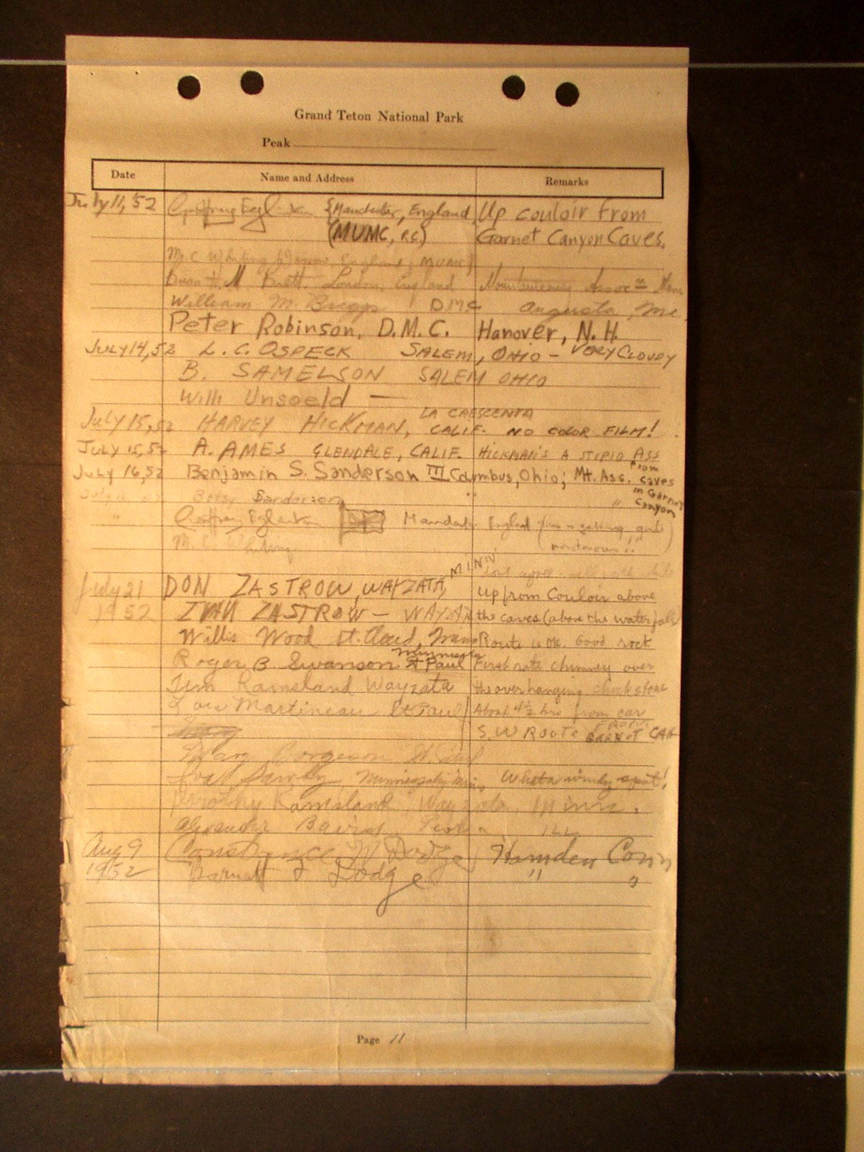 Grand Teton National Park
Peak
Date Name and Address Remarks
July 11, 52 Manchester, England, Up couloir from
(MUMC, R.C.) Garnet Canyon Caves.
M. C. Whiting England, MUMC)
Brett London, England Mountaineering
William M. Briggs DMC Augusta, Me.
Peter Robinson, D.M.C. Hanover, N.H.
July 14, 52 L. C. OSPECK SALEM, OHIO - VERY CLOUDY
B. SAMELSON SALEM OHIO
Willi Unsoeld —
LA CRESCENTA
July 15, 52 HARVEY HICKMAN, CALIF. NO COLOR FILM!
July 15, 52 A. AMES GLENDALE, CALIF. HICKMAN'S A STIPID ASS
July 16, 52 Benjamin S. Sanderson III Columbus, Ohio; Mt. Ass. from caves
Sanderson " " in Garnet Canyon
England
July 21 DON ZASTROW, WAYZATA, MINN Up from Couloir above
1952 IVAN ZASTROW — WAYZATA the caves (above the waterfall)
Willis Wood St. Cloud, Route is OK. Good rock
Roger B. Swanson St Paul Minnesota First rate chimney over
Jim Ramsland Wayzata the overhanging chockstone
Lou Martineau St Paul About 4½ hrs from car
S.W ROUTE FROM GARNET CAN
Mary Borgeson St Paul
Minneapolis Minn. What a windy spot!
Dorothy Ramsland Wayzata, Minn.
Alexander Ill
Aug 9 Constance W Dodge Hamden Conn
1952 Barnett F Dodge " "
Page 11